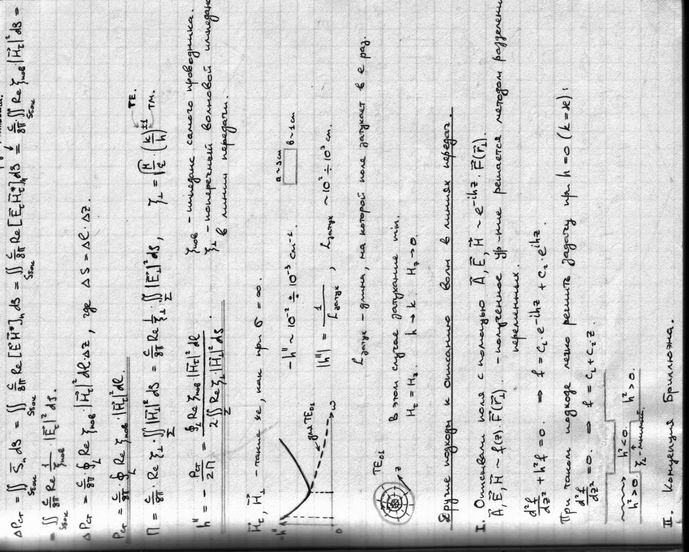 ΔP_ст = ∬_{S_бок} S̄_n dS = ∬_{S_бок} c/8π Re [E⃗ H⃗*]_n dS = ∬_{S_бок} c/8π Re [E⃗_τ H⃗_τ*]_n dS = c/8π ∬_{S_бок} Re ζ_пов |H⃗_τ|² dS =
= ∬_{S_бок} c/8π Re 1/ζ_пов |E⃗_τ|² dS.
ΔP_ст = c/8π ∮_L Re ζ_пов |H⃗_τ|² dl·Δz, где ΔS = Δl·Δz.
P_ст = c/8π ∮_L Re ζ_пов |H⃗_τ|² dl.
П = c/8π Re ζ_⊥ ∬_Σ |H⃗_⊥|² dS = c/8π Re 1/ζ_⊥ ∬_Σ |E⃗_⊥|² dS, ζ_⊥ = √(μ/ε) (k/h)^{±1} TE. TM.
h'' = - P_ст/2П = - ∮_L Re ζ_пов |H_τ|² dl / 2∬_Σ Re ζ_⊥ |H⃗_⊥|² dS
ζ_пов - импеданс самого проводника.
ζ_⊥ - поперечный волновой импеданс
в линии передачи.
H⃗_τ, H⃗_⊥ - такие же, как при σ = ∞.
-h''
для TE₀₁
0
ω
- h'' ~ 10⁻² ÷ 10⁻³ см⁻¹
a ~ 3 см
b ~ 1 см
|h''| = 1/L_затух, L_затух ~ 10² ÷ 10³ см.
L_затух - длина, на которой поле затухает в e раз.
TE₀₁
z
в этом случае затухание min.
H_τ = H_z. h → k H_z → 0.
Другие подходы к описанию волн в линиях передач.
I. Описывали поля с помощью A⃗, E⃗, H⃗ ~ e^{-ihz}·F⃗(r⃗_⊥).
A⃗, E⃗, H⃗ ~ f(z)·F⃗(r⃗_⊥). - полученное ур-ние решается методом разделения
переменных
d²f/dz² + h²f = 0. ⇒ f = c₁·e^{-ihz} + c₂ e^{ihz}
При таком подходе легко решить задачу при h = 0 (k = ϰ):
d²f/dz² = 0. ⇒ f = c₁ + c₂·z.
h² > 0.
h² < 0.
h² > 0.
II. Концепция Бриллюэна.